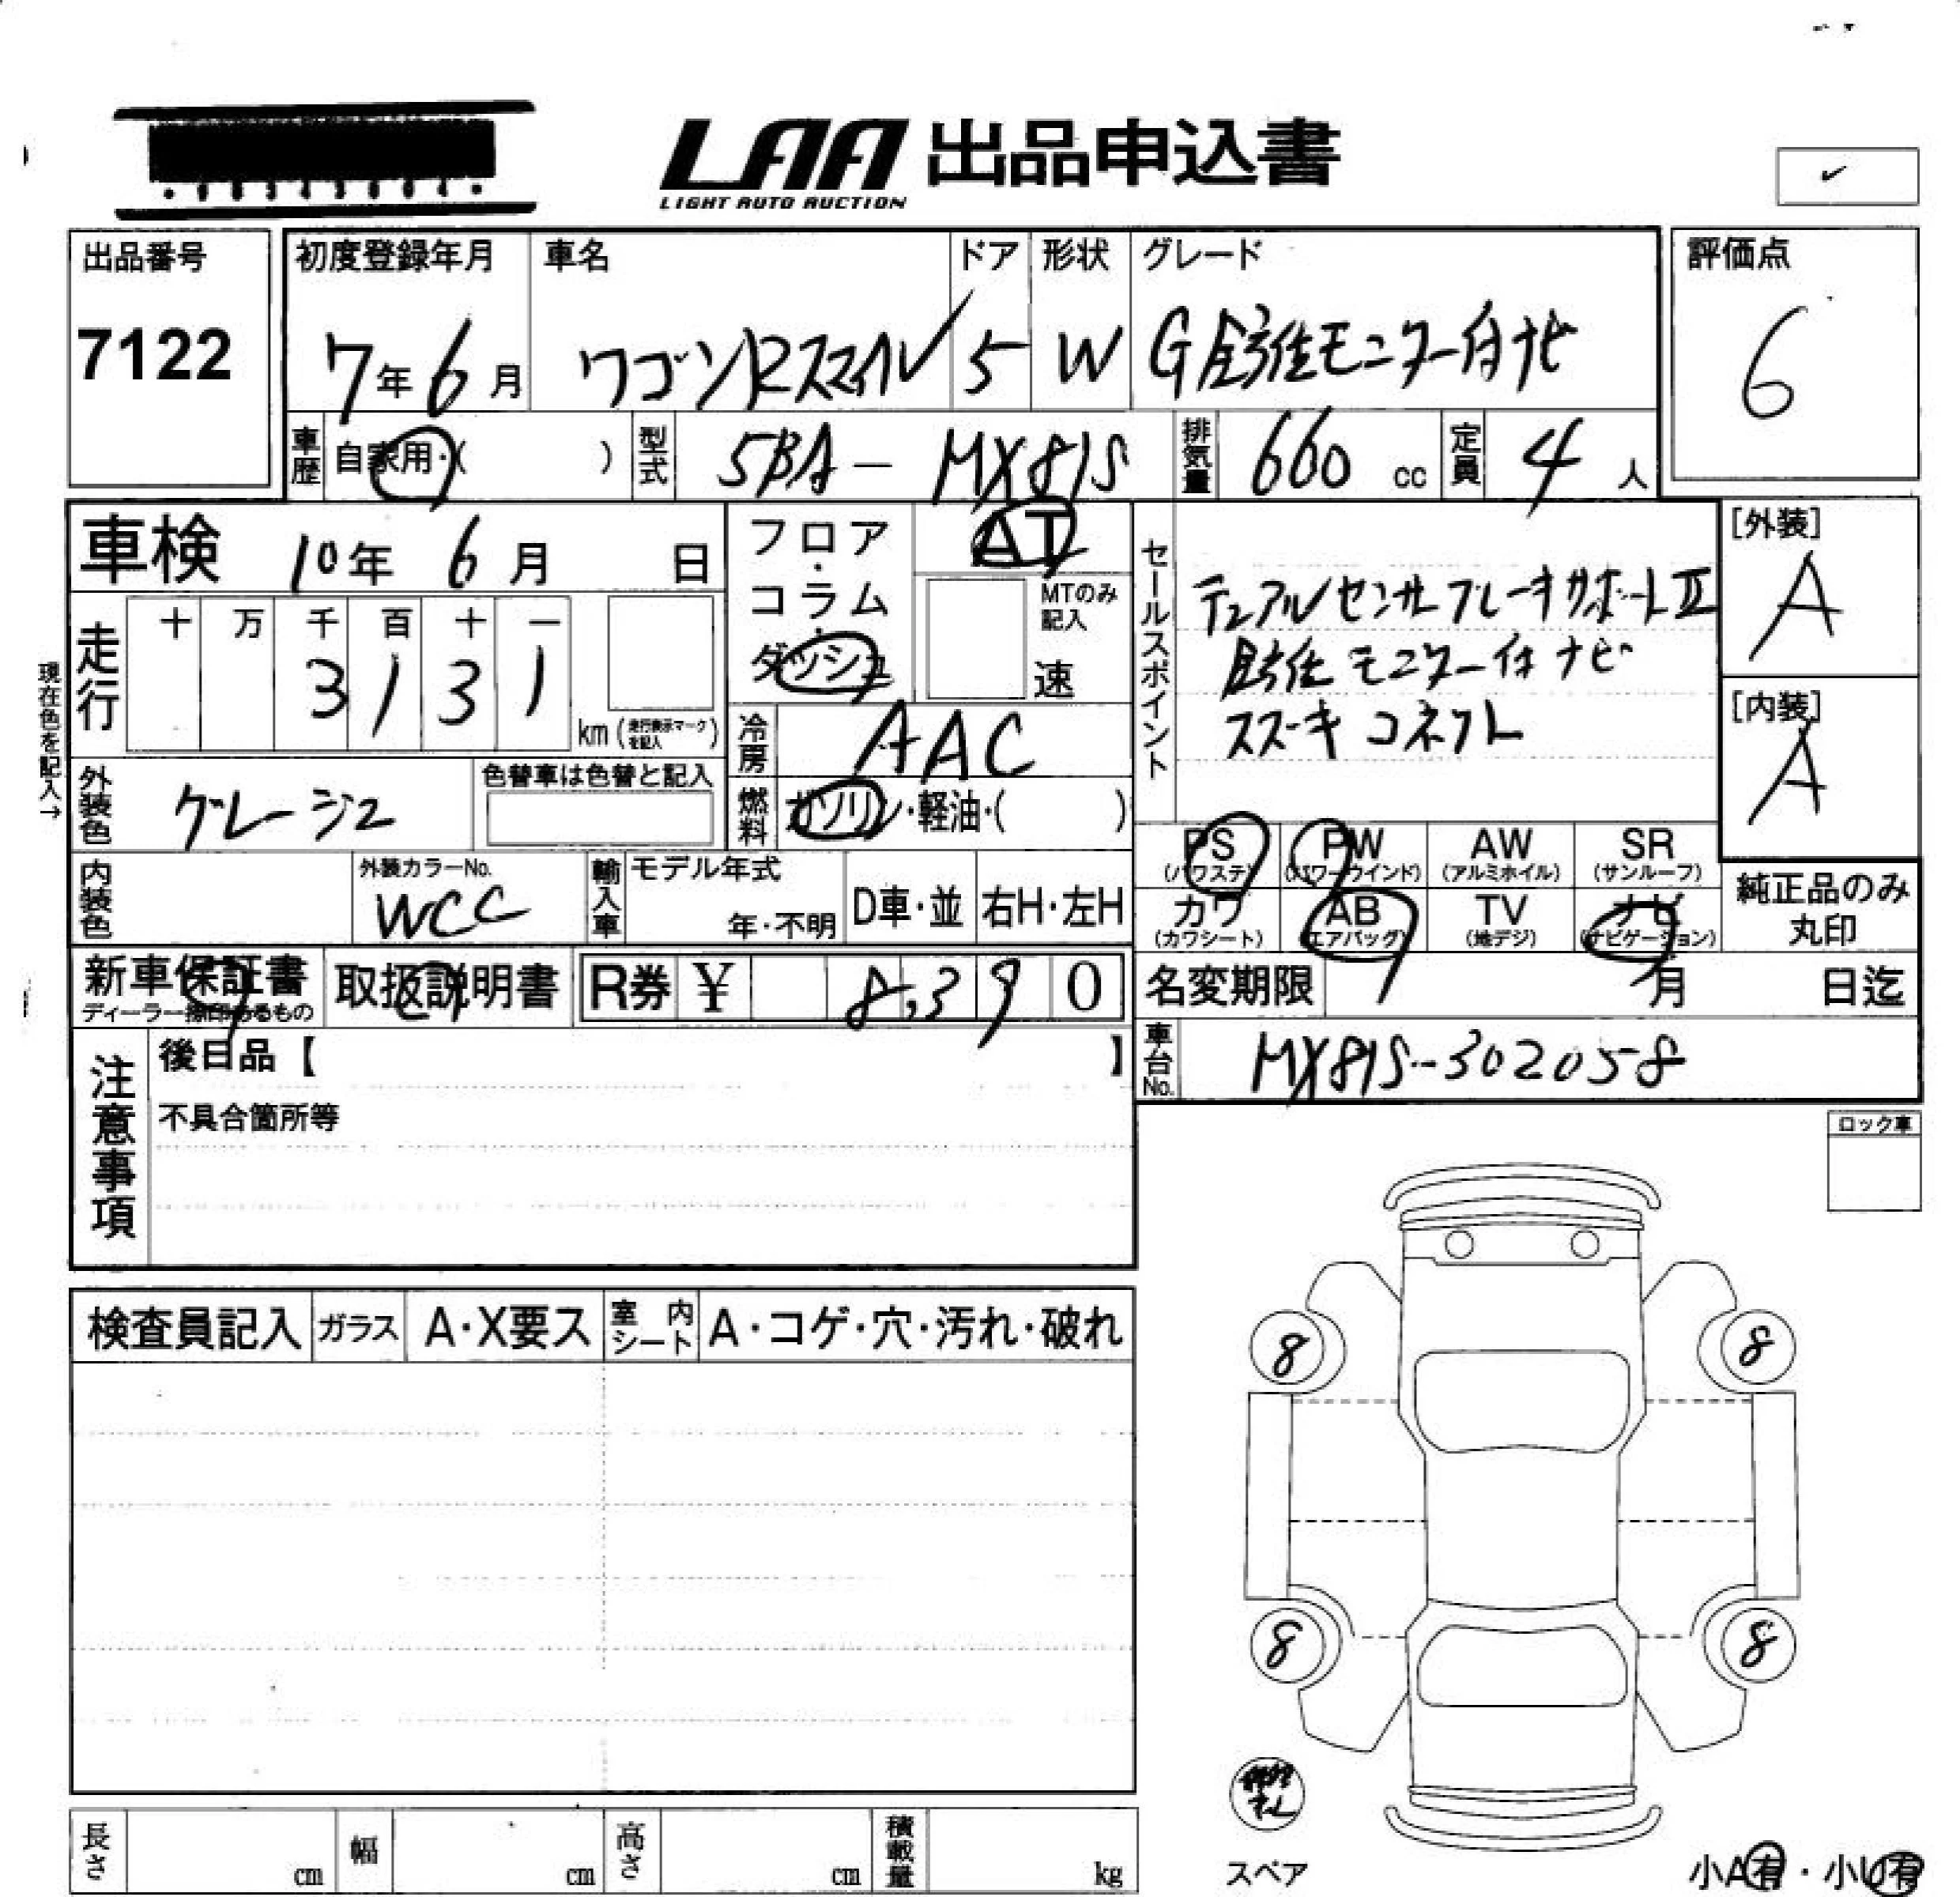 LAA 出品申込書
LIGHT AUTO AUCTION
出品番号
7122
初度登録年月
7年6月
車名
ワゴンRスマイル
ドア
5
形状
W
グレード
G 全方位モニター付ナビ
評価点
6
車歴
自家用・( )
型式
5BA-MX81S
排気量
660 cc
定員
4人
車検 10年 6月 日
走行
十 万 千 百 十 一
3 1 3 1
km(走行表示マークを記入)
現在色を記入→
フロア・コラム・ダッシュ
AT
MTのみ記入
速
冷房
AAC
燃料
ガソリン・軽油・( )
セールスポイント
デュアルセンサーブレーキサポートⅡ
全方位モニター付ナビ
スズーキコネクト
[外装]
A
[内装]
A
外装色
グレージュ
色替車は色替と記入
内装色
外装カラーNo.
WCC
輸入車
モデル年式
年・不明
D車・並
右H・左H
PS
(パワステ)
PW
(パワーウインド)
AW
(アルミホイル)
SR
(サンルーフ)
カワ
(カワシート)
AB
(エアバッグ)
TV
(地デジ)
ナビ
(ナビゲーション)
純正品のみ丸印
新車保証書
ディーラー捺印あるもの
取扱説明書
R券 ¥ 8,390
名変期限 月 日迄
車台No.
MX81S-302058
注意事項
後日品【 】
不具合箇所等
ロック車
検査員記入
ガラス
A・X要ス
室内シート
A・コゲ・穴・汚れ・破れ
8
8
8
8
スペア
小A有・小U有
長さ cm
幅 cm
高さ cm
積載量 kg